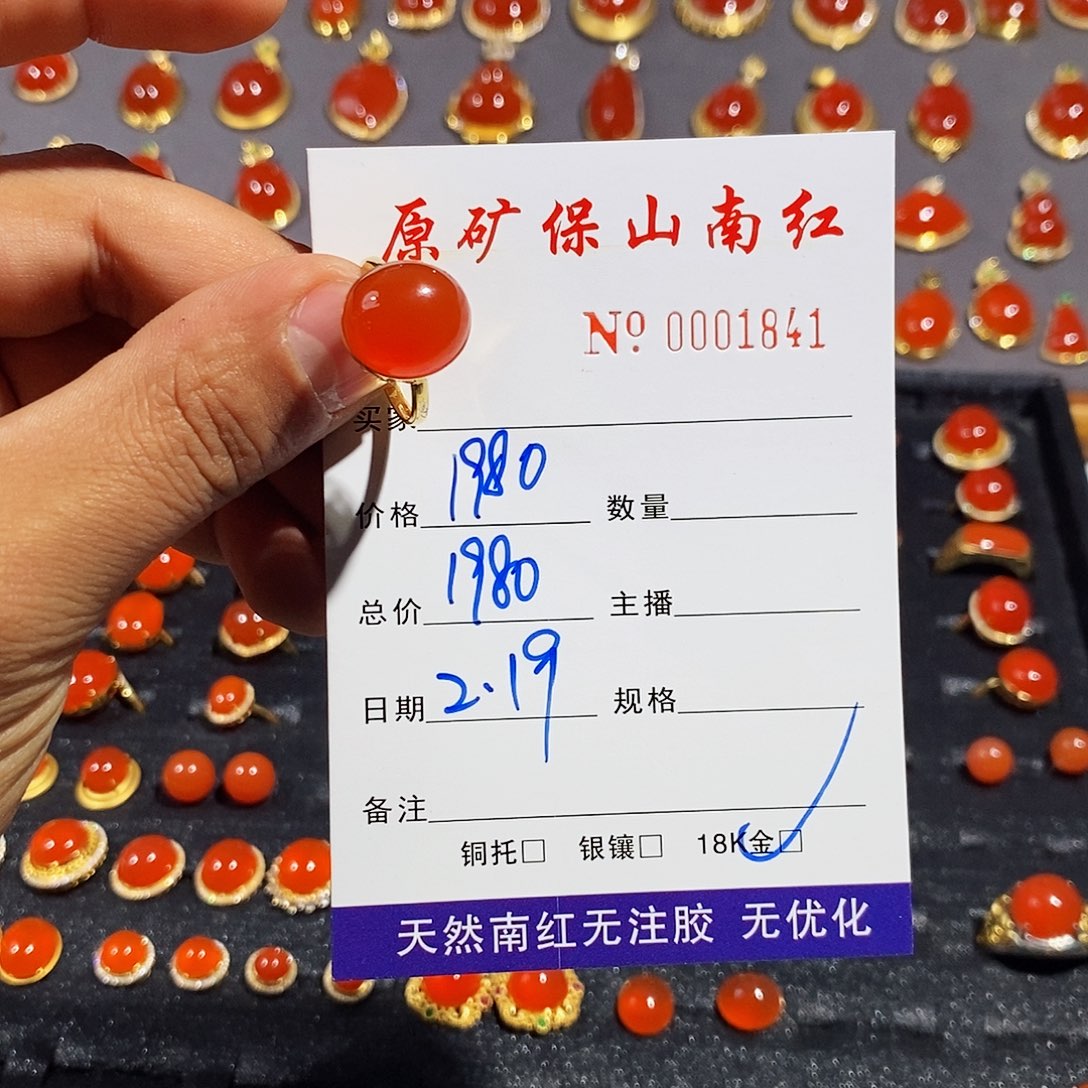 原矿保山南红
No 0001841
买家
价格 1980 数量
总价 1980 主播
日期 2.19 规格
备注
铜托□ 银镶□ 18K金□
天然南红无注胶 无优化